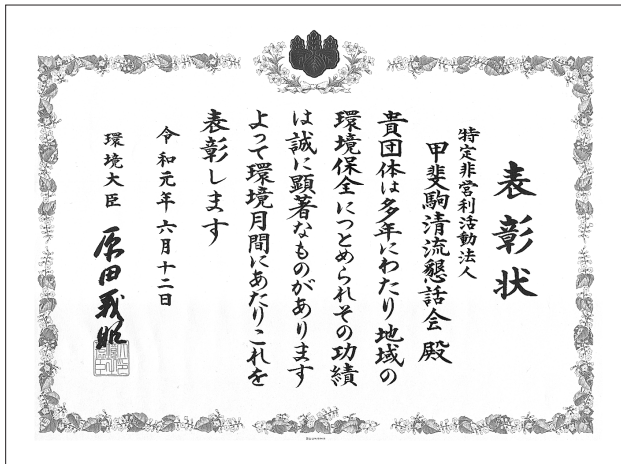 表彰状
特定非営利活動法人
甲斐駒清流懇話会 殿
貴団体は多年にわたり地域の
環境保全につとめられその功績
は誠に顕著なものがあります
よって環境月間にあたりこれを
表彰します
令和元年六月十二日
環境大臣 原田義昭